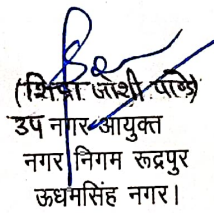 (शिप्रा जोशी पाण्डे)
उप नगर आयुक्त
नगर निगम रूद्रपुर
ऊधमसिंह नगर।